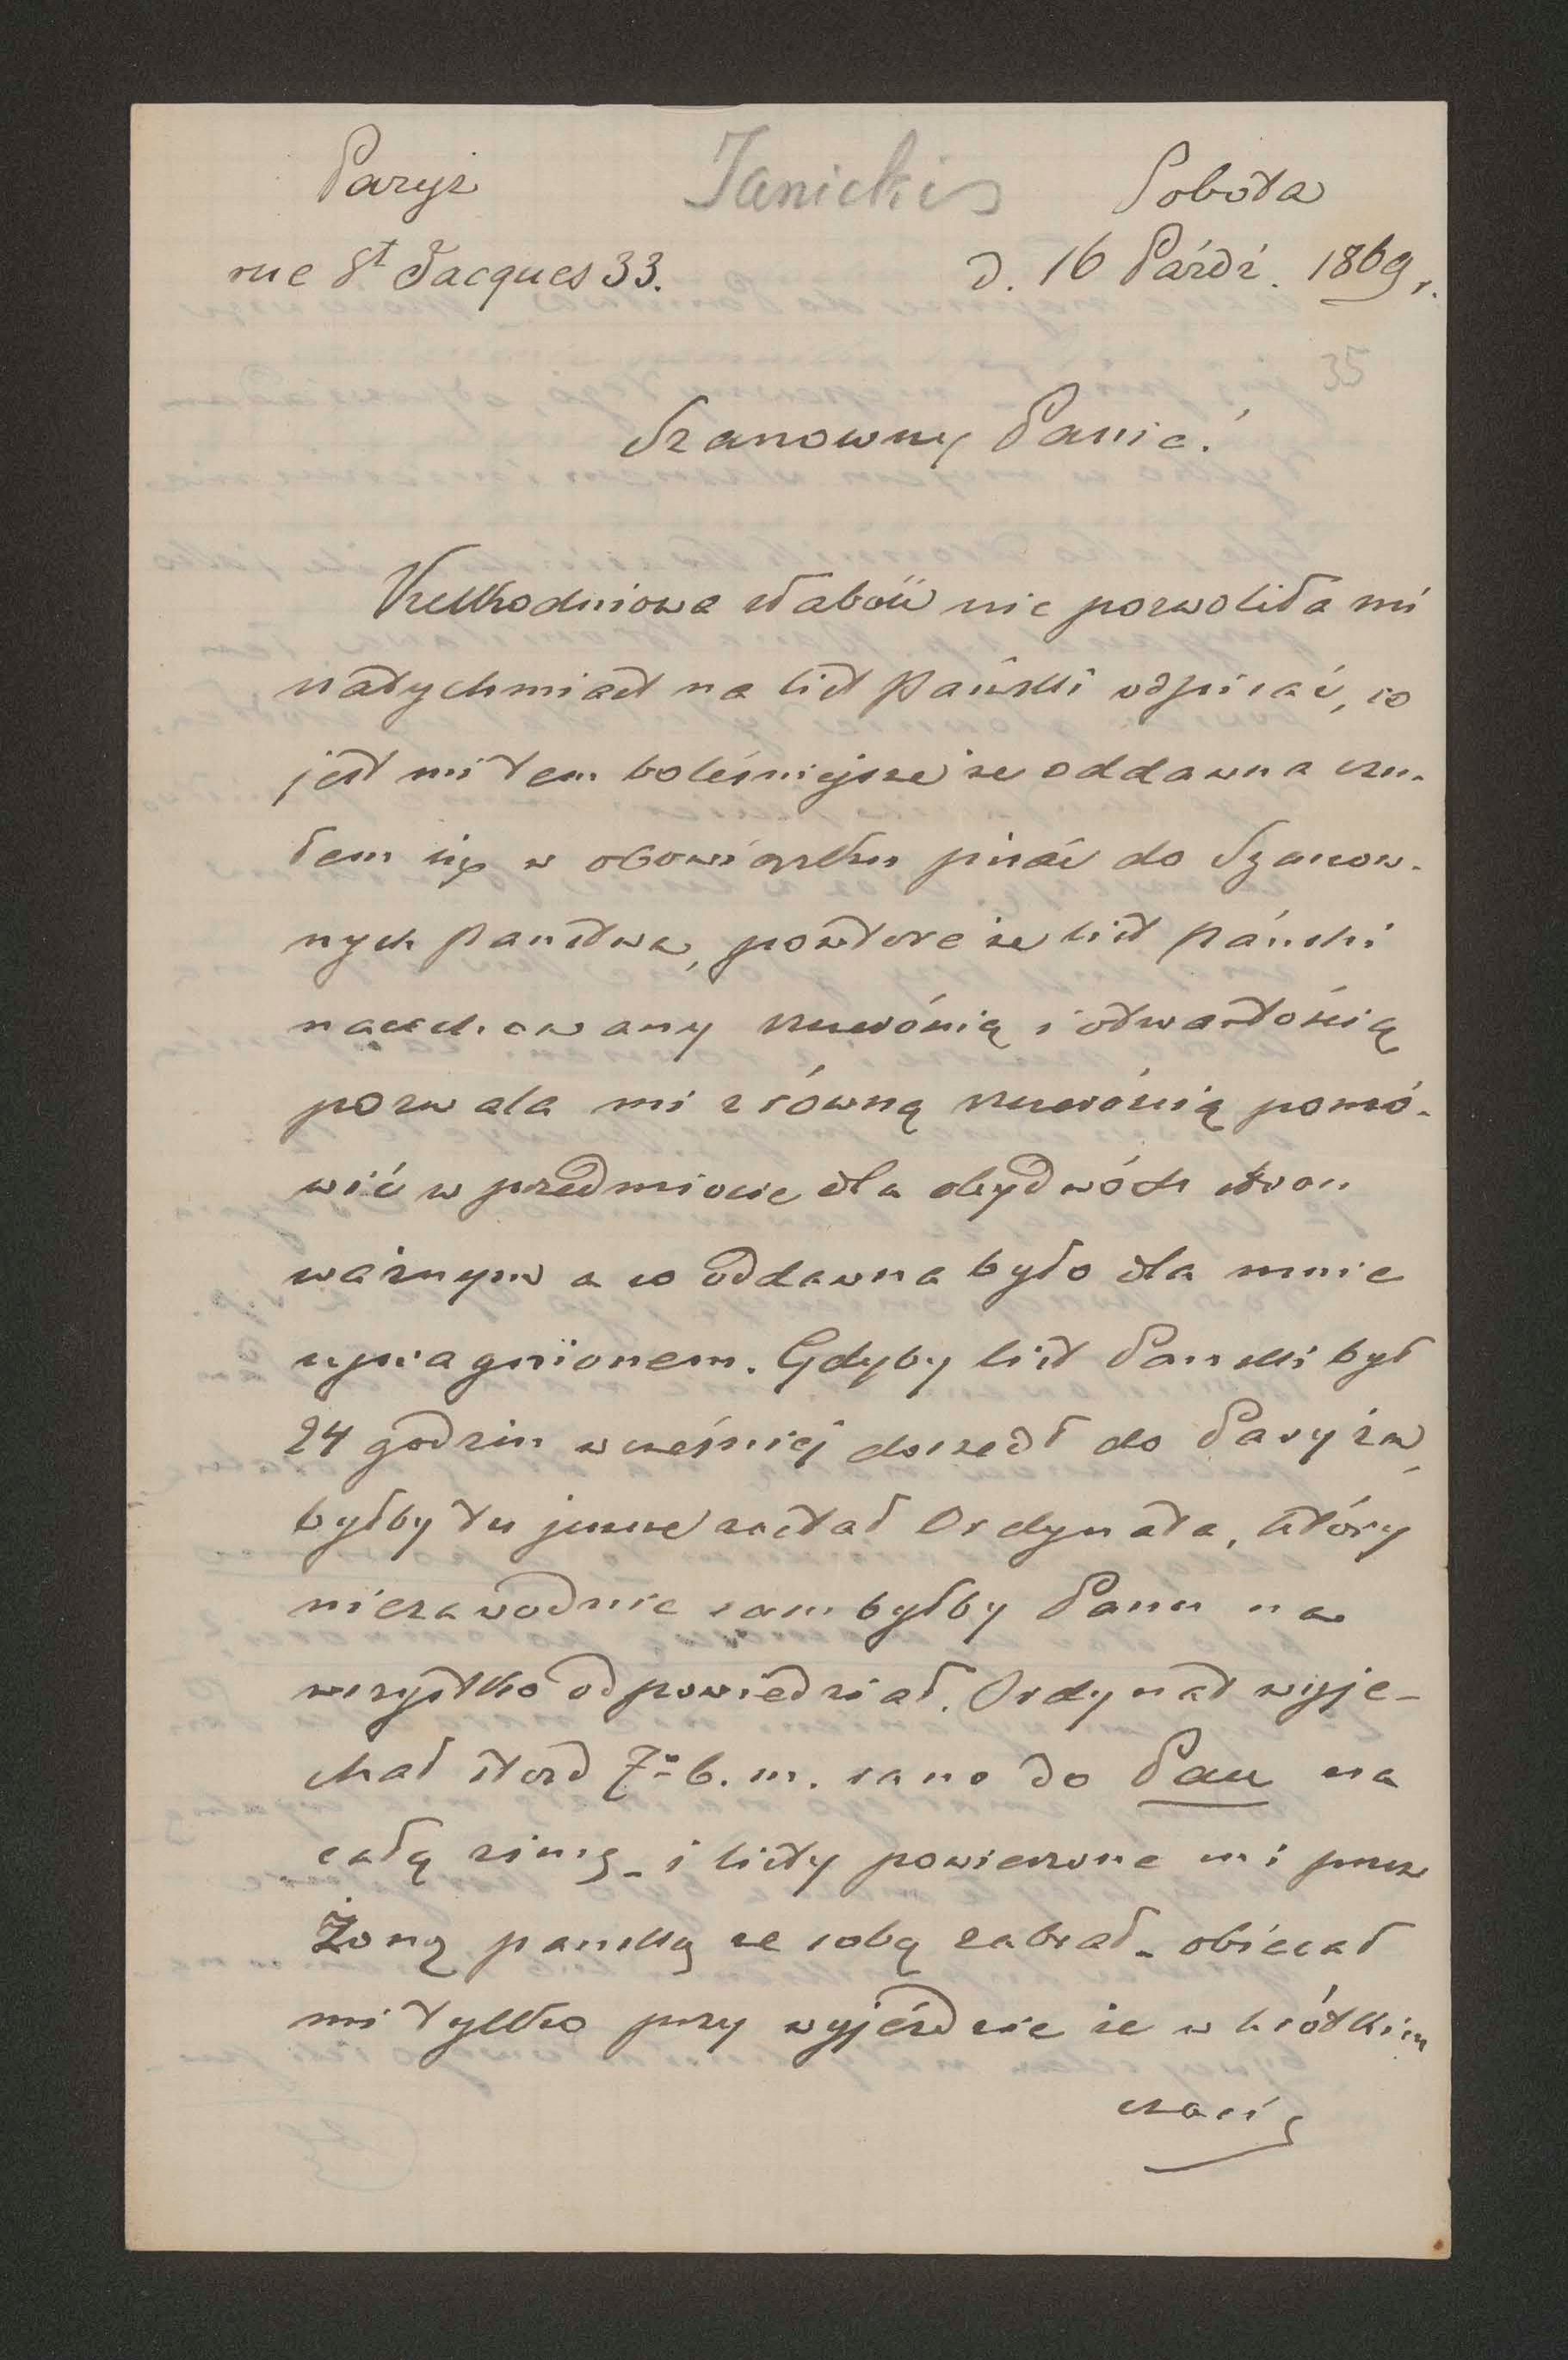 Paryż Janicki Sobota
rue St Jacques 33. d. 16 Paźdź. 1869 r.
35
Szanowny Panie!
Kilkodniowa słabość nie pozwoliła mi
natychmiast na list Pański odpisać, co
jest mi tem boleśniejsze że oddawna czu-
łem się w obowiązku pisać do Szanow-
nych Państwa, powtóre że list Pański
nacechowany szczerością i otwartością
pozwala mi z równą szczerością pomó-
wić w przedmiocie dla obydwóch stron
ważnym a co oddawna było dla mnie
upragnionem. Gdyby list Pański był
24 godzin wcześniej doszedł do Paryża,
byłby tu jeszcze zastał Ordynata, który
niezawodnie sam byłby Panu na
wszystko odpowiedział. Ordynat wyje-
chał stąd 7º b. m. rano do Pau na
całą zimę - i listy powierzone mi przez
Żonę pańską ze sobą zabrał - obiecał
mi tylko przy wyjeździe że w krótkim
czasie